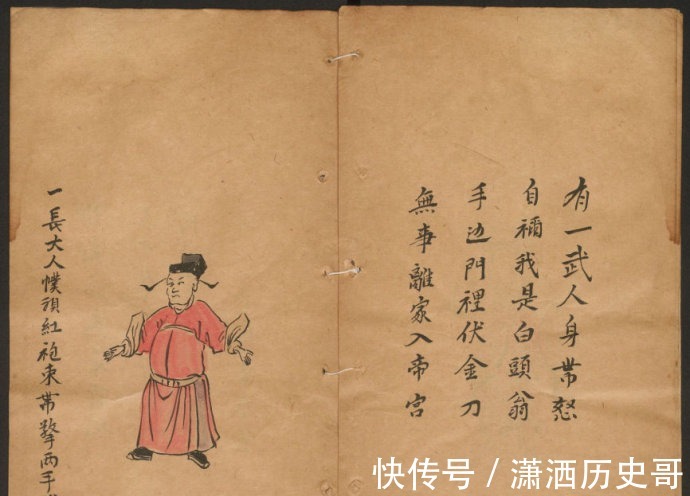 有一武人身帶怒
自稱我是白頭翁
手边門裡伏金刀
無事離家入帝宮
一長大人幞頭紅袍束帶擎两手
快传号 / 潇洒历史哥